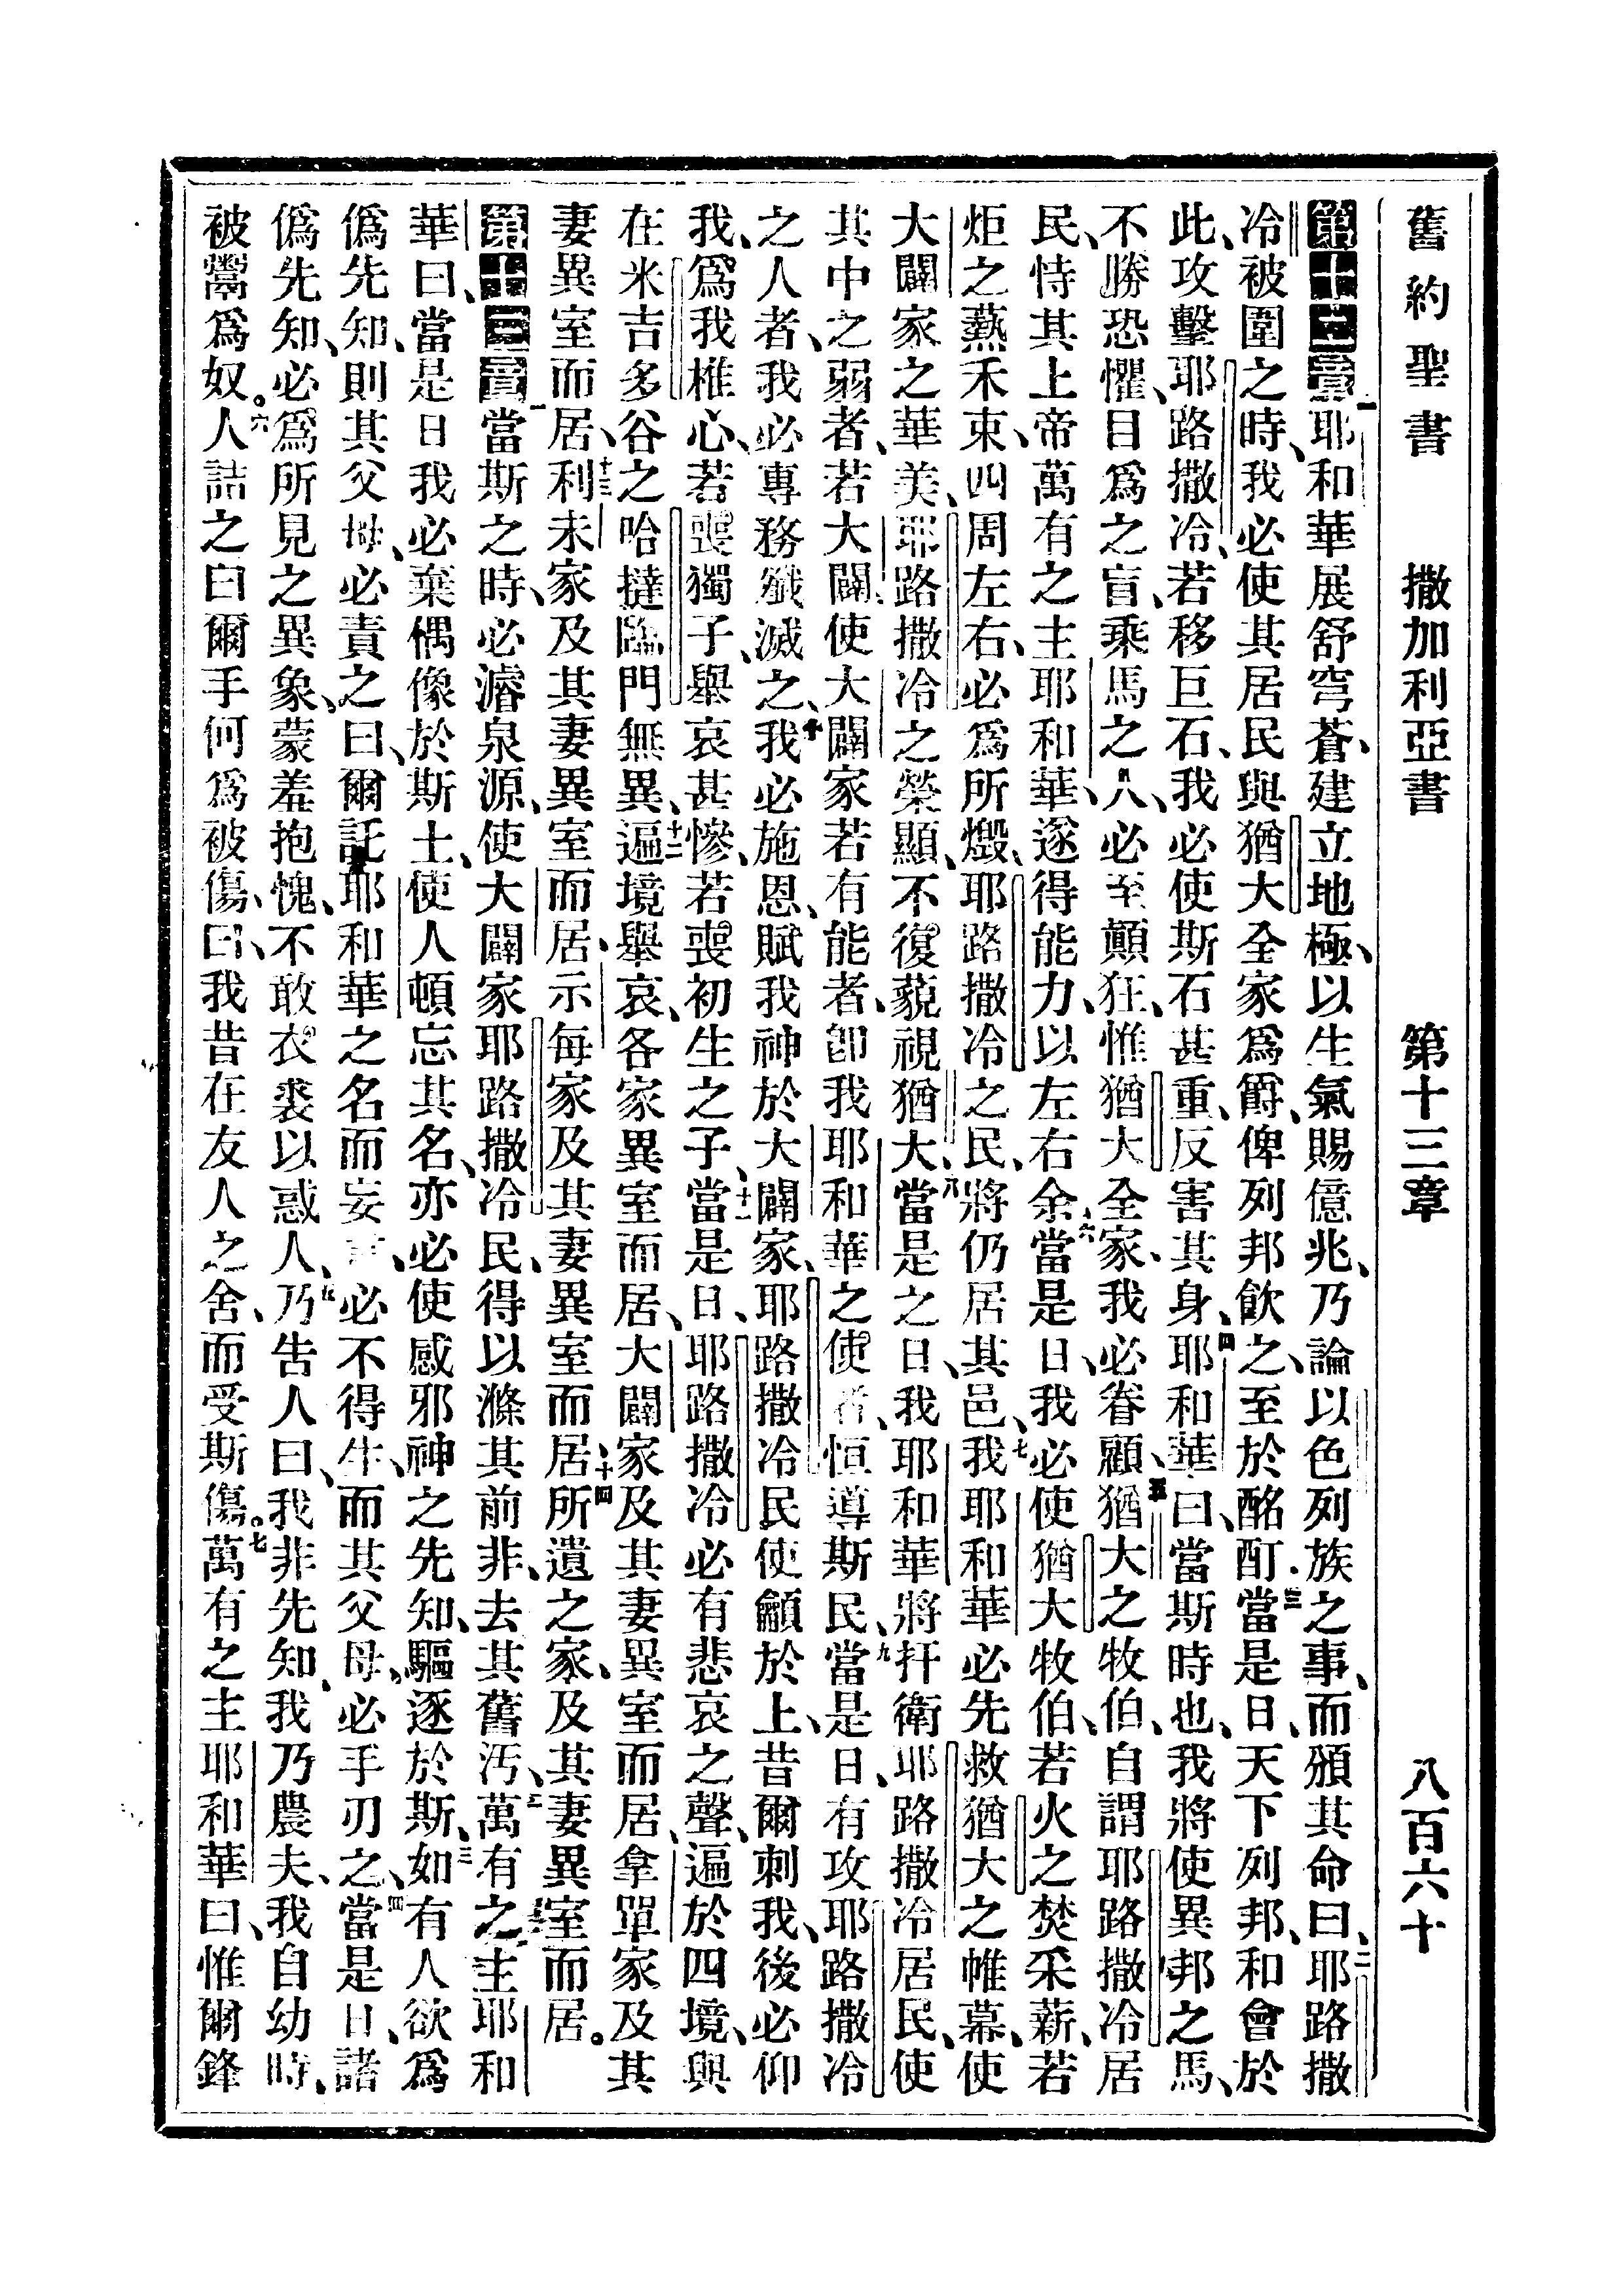 舊約聖書 撒加利亞書 第十三章 八百六十
第十二章一耶和華展舒穹蒼、建立地極、以生氣賜億兆、乃論以色列族之事、而頒其命曰、二耶路撒
冷被圍之時、我必使其居民與猶大全家爲爵、俾列邦飲之、至於酩酊、三當是日、天下列邦、和會於
此、攻擊耶路撒冷、若移巨石、我必使斯石甚重、反害其身、四耶和華曰、當斯時也、我將使異邦之馬、
不勝恐懼、目爲之盲、乘馬之人、必至顚狂、惟猶大全家、我必眷顧、五猶大之牧伯、自謂耶路撒冷居
民、恃其上帝萬有之主耶和華、遂得能力、以左右余、六當是日、我必使猶大牧伯、若火之焚采薪、若
炬之爇禾束、四周左右、必爲所燬、耶路撒冷之民、將仍居其邑、七我耶和華必先救猶大之帷幕、使
大闢家之華美、耶路撒冷之榮顯、不復藐視猶大、八當是之日、我耶和華將扞衛耶路撒冷居民、使
其中之弱者、若大闢、使大闢家若有能者、卽我耶和華之使者、恒導斯民、九當是日、有攻耶路撒冷
之人者、我必專務殲滅之、十我必施恩、賦我神於大闢家、耶路撒冷民、使龥於上、昔爾刺我、後必仰
我、爲我椎心、若喪獨子、舉哀甚慘、若喪初生之子、十一當是日、耶路撒冷必有悲哀之聲、遍於四境、與
在米吉多谷之哈撻臨門無異、十二遍境舉哀、各家異室而居、大闢家及其妻異室而居、拿單家及其
妻異室而居、十三利未家及其妻異室而居、示每家及其妻異室而居、十四所遺之家、及其妻異室而居。
第十三章一當斯之時、必濬泉源、使大闢家耶路撒冷民、得以滌其前非、去其舊汚、二萬有之主耶和
華曰、當是日我必棄偶像於斯土、使人頓忘其名、亦必使感邪神之先知、驅逐於斯、三如有人欲爲
僞先知、則其父母、必責之曰、爾託耶和華之名而妄言、必不得生、而其父母、必手刃之、四當是日、諸
僞先知、必爲所見之異象、蒙羞抱愧、不敢衣裘以惑人、五乃吿人曰、我非先知、我乃農夫、我自幼時、
被鬻爲奴。六人詰之曰爾手何爲被傷、曰、我昔在友人之舍、而受斯傷。七萬有之主耶和華曰、惟爾鋒